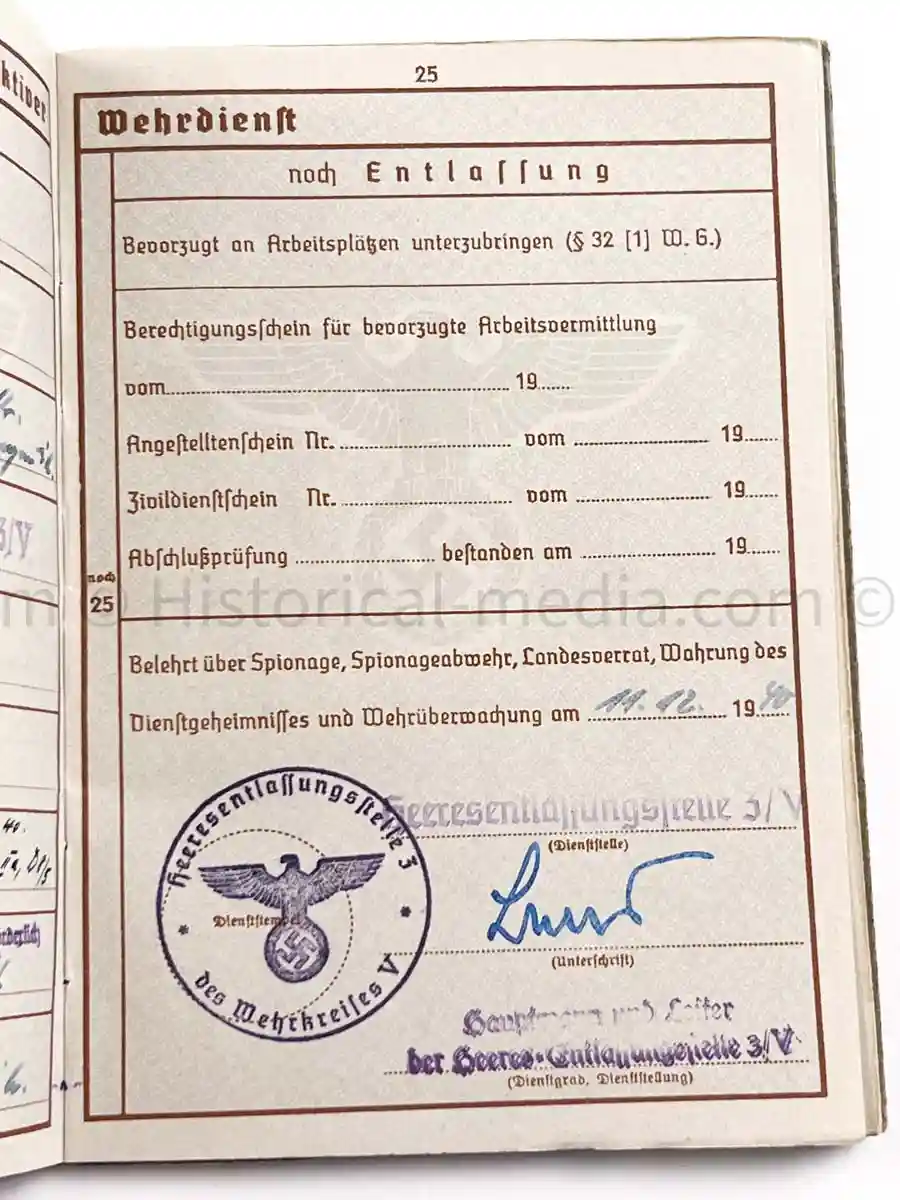 ktiver
25
Wehrdienst
noch Entlassung
Bevorzugt an Arbeitsplätzen unterzubringen (§ 32 [1] W. G.)
Berechtigungsschein für bevorzugte Arbeitsvermittlung
vom 19
Angestelltenschein Nr. vom 19
Zivildienstschein Nr. vom 19
Abschlußprüfung bestanden am 19
noch
25
© Historical-media.com ©
Belehrt über Spionage, Spionageabwehr, Landesverrat, Wahrung des
Dienstgeheimnisses und Wehrüberwachung am 11.12. 1940
Heeresentlassungsstelle 3/V
(Dienststelle)
Heeresentlassungsstelle 3
des Wehrkreises V
Dienststempel
(Unterschrift)
Hauptmann und Leiter
der Heeres-Entlassungsstelle 3/V
(Dienstgrad, Dienststellung)
3/V
40.